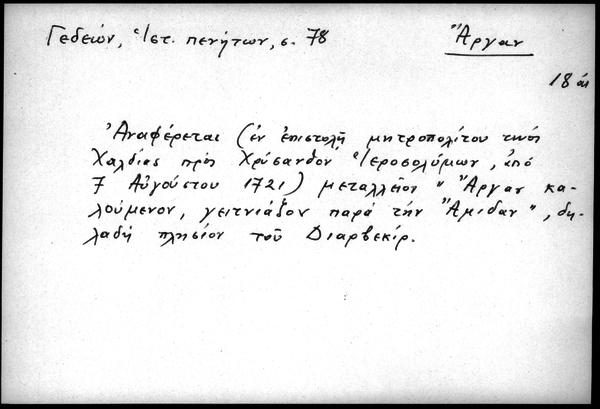 Γεδεών, Ἱστ. πενήτων, σ. 78
Ἄργαν
18 αἰ
Ἀναφέρεται (ἐν ἐπιστολῇ μητροπολίτου τινός
Χαλδίας πρὸς Χρύσανθον Ἱεροσολύμων, ἀπό
7 Αὐγούστου 1721) μεταλλεῖον "Ἄργαν κα-
λούμενον, γειτνιάζον παρά τήν Ἄμιδαν", δη-
λαδή πλησίον τοῦ Διαρβεκίρ.